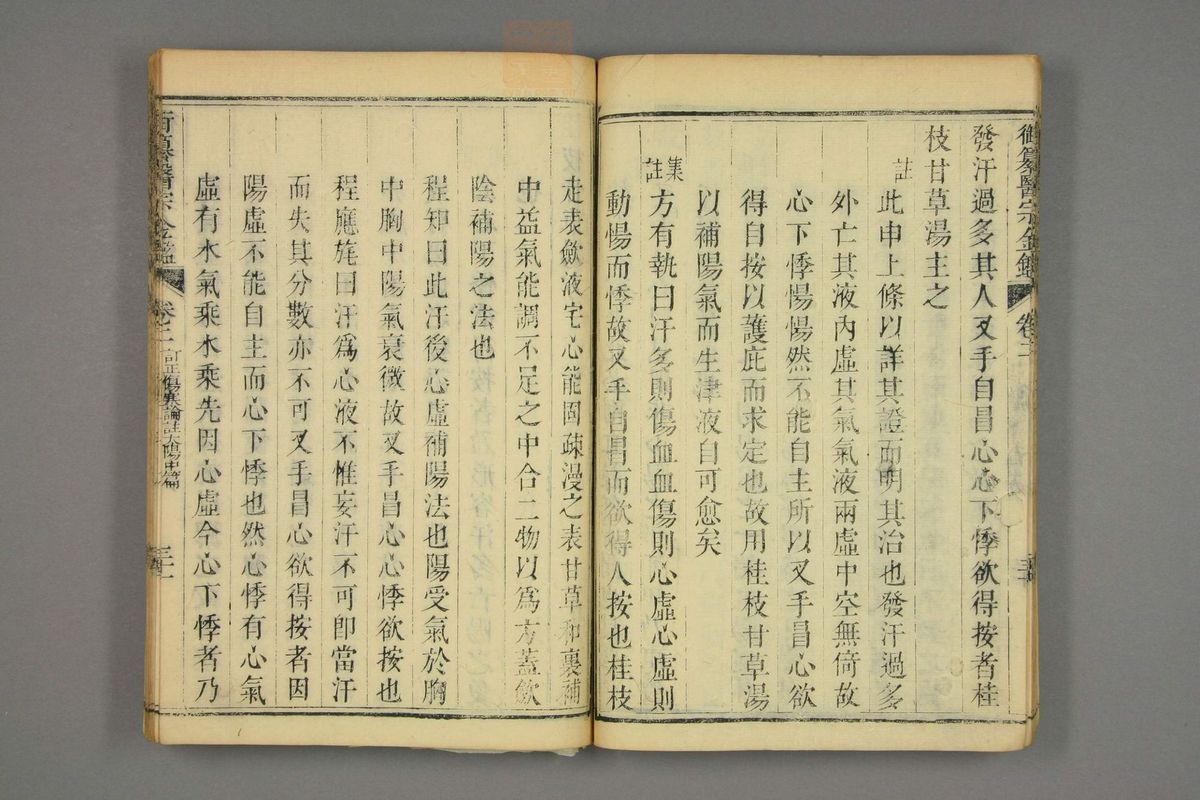 御纂醫宗金鑑 卷二
發汗過多其人叉手自冒心心下悸欲得按者桂
枝甘草湯主之
註
此申上條以詳其證而明其治也發汗過多
外亡其液內虛其氣氣液兩虛中空無倚故
心下悸惕惕然不能自主所以叉手冒心欲
得自按以護庇而求定也故用桂枝甘草湯
以補陽氣而生津液自可愈矣
集註
方有執曰汗多則傷血血傷則心虛心虛則
動惕而悸故叉手自冒而欲得人按也桂枝
走表斂液宅心能固疎漫之表甘草和裏補
中益氣能調不足之中合二物以爲方蓋斂
陰補陽之法也
程知曰此汗後心虛補陽法也陽受氣於胸
中胸中陽氣衰微故叉手冒心心悸欲按也
程應旄曰汗爲心液不惟妄汗不可卽當汗
而失其分數亦不可叉手冒心欲得按者因
陽虛不能自主而心下悸也然心悸有心氣
虛有水氣乘水乘先因心虛今心下悸者乃
御纂醫宗金鑑 卷二 訂正傷寒論註太陽中篇